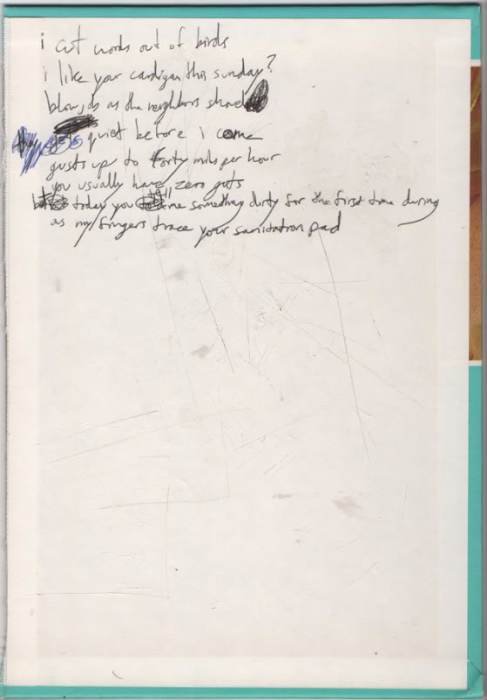 i cut words out of birds
i like your cardigan this sunday?
blowjobs as the neighbors shovel
quiet before i come
gusts up to forty miles per hour
you usually have zero guts
today you me something dirty for the first time during
as my fingers trace your sanitation pad